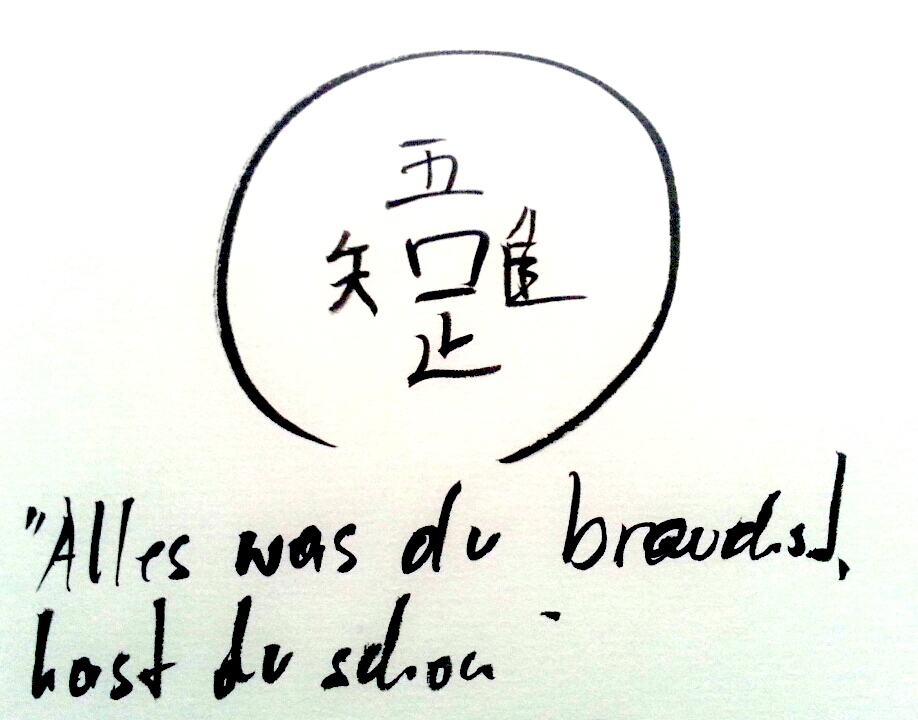 五
矢口隹
止
"Alles was du brauchst,
hast du schon"